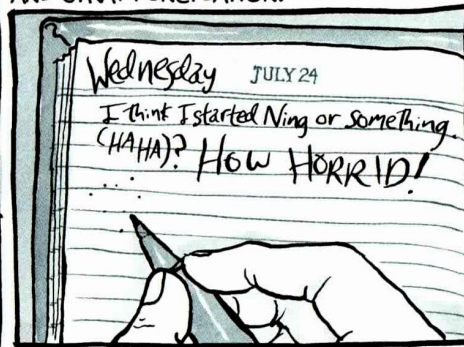 AND
Wednesday JULY 24
I think I started Ning or something.
(HAHA)? HOW HORRID!